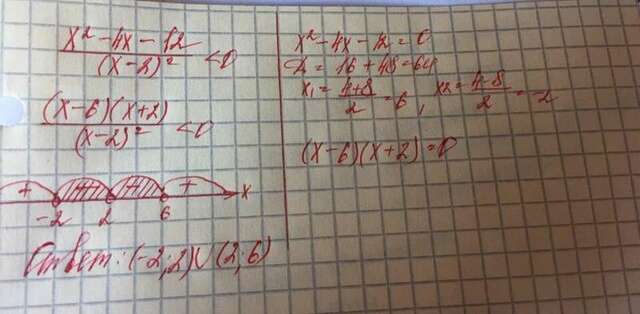 x² - 4x - 12 / (x-2)² < 0
(x-6)(x+2) / (x-2)² < 0
+ + x
-2 2 6
Ответ: (-2;2)∪(2;6)
x² - 4x - 12 = 0
D = 16 + 48 = 64
x₁ = 4+8 / 2 = 6, x₂ = 4-8 / 2 = -2
(x-6)(x+2) = 0